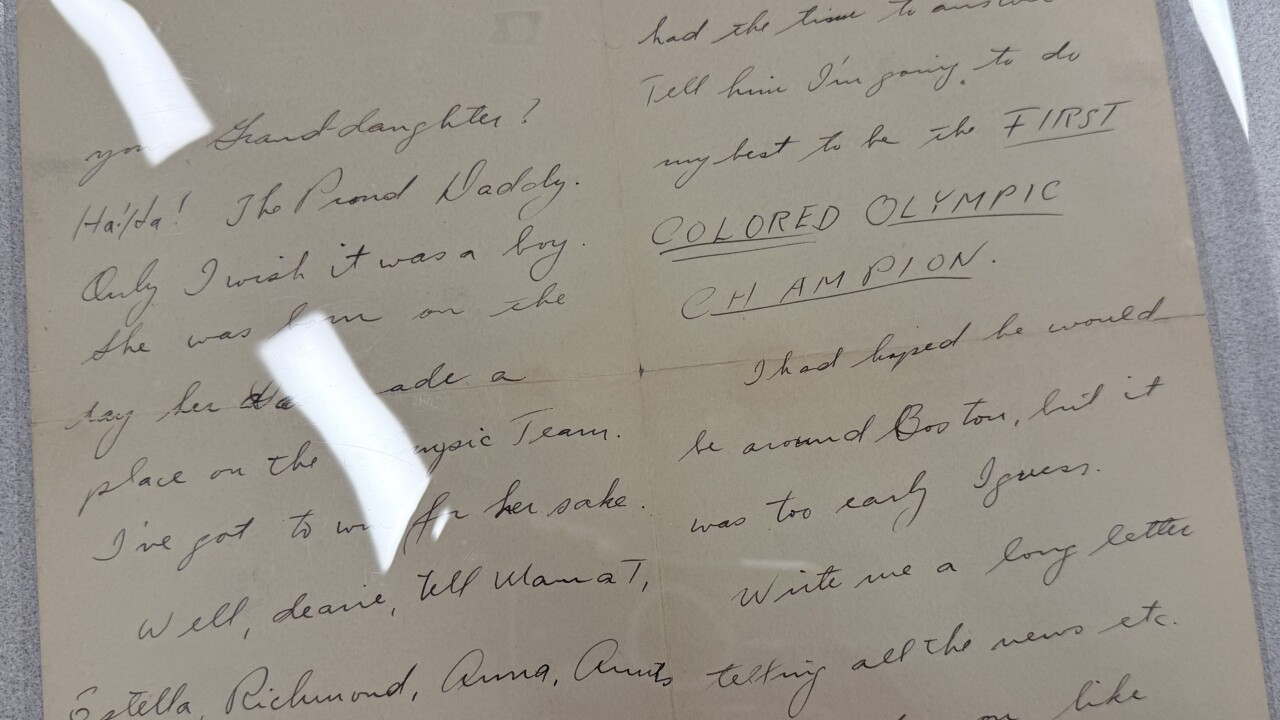 Granddaughter?
Ha! Ha! The Proud Daddy.
Only I wish it was a boy.
She was born on the
day her a
place on the Team.
I've got to for her sake.
Well, dearie, tell Mama T,
Estella, Richmond, Anna, Aunts
had the time to
Tell him I'm going to do
my best to be the FIRST
COLORED OLYMPIC
CHAMPION.
I had hoped he would
be around Boston, but it
was too early I guess.
Write me a long letter
telling all the news etc.
like